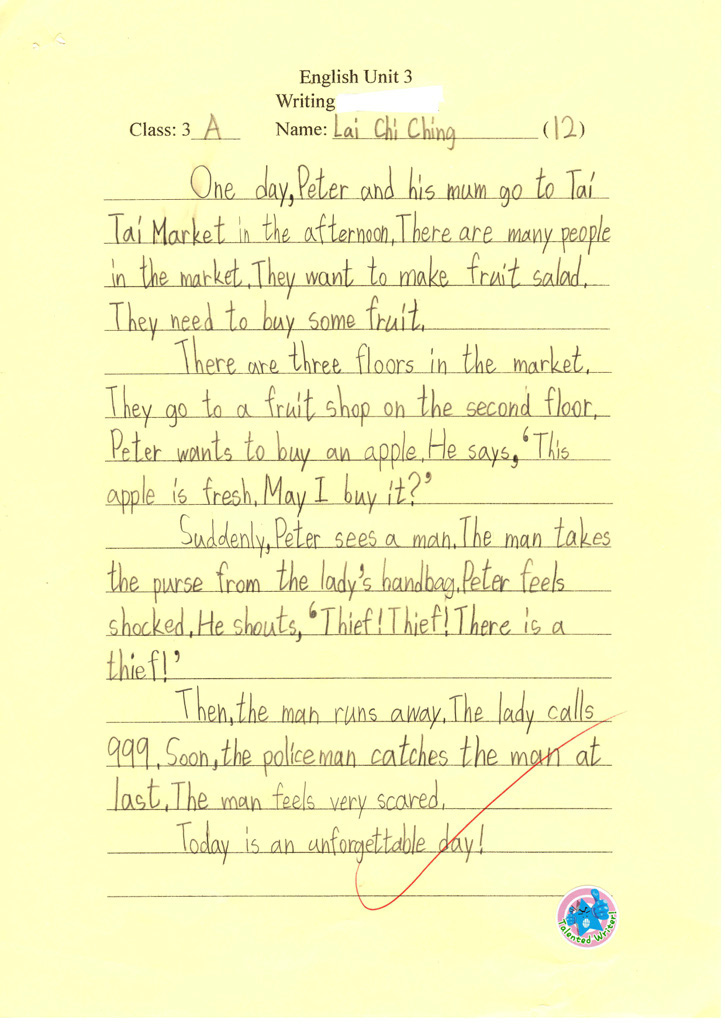 English Unit 3
Writing
Class: 3 A Name: Lai Chi Ching (12)
One day, Peter and his mum go to Tai
Tai Market in the afternoon. There are many people
in the market. They want to make fruit salad.
They need to buy some fruit.
There are three floors in the market.
They go to a fruit shop on the second floor.
Peter wants to buy an apple. He says, 'This
apple is fresh. May I buy it?'
Suddenly, Peter sees a man. The man takes
the purse from the lady's handbag. Peter feels
shocked. He shouts, 'Thief! Thief! There is a
thief!'
Then, the man runs away. The lady calls
999. Soon, the policeman catches the man at
last. The man feels very scared.
Today is an unforgettable day!
Talented Writer!